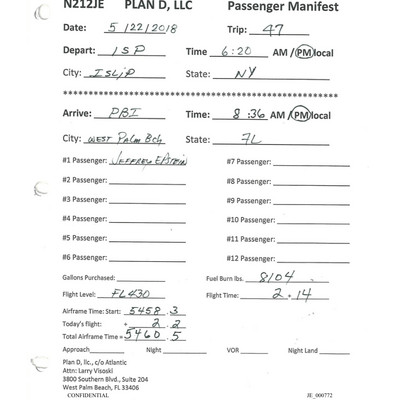 N212JE PLAN D, LLC Passenger Manifest
Date: 5/22/2018 Trip: 47
Depart: ISP Time 6:20 AM/PM local
City: ISLIP State: NY
Arrive: PBI Time: 8:36 AM/PM local
City: WEST Palm Bch State: FL
#1 Passenger: Jeffrey Epstein #7 Passenger:
#2 Passenger: #8 Passenger:
#3 Passenger: #9 Passenger:
#4 Passenger: #10 Passenger:
#5 Passenger: #11 Passenger:
#6 Passenger: #12 Passenger:
Gallons Purchased: Fuel Burn lbs. 8104
Flight Level: FL430 Flight Time: 2.14
Airframe Time: Start: 5458.3
Today's flight: + 2.2
Total Airframe Time = 5460.5
Approach Night VOR Night Land
Plan D, llc, c/o Atlantic
Attn: Larry Visoski
3800 Southern Blvd., Suite 204
West Palm Beach, FL 33406
CONFIDENTIAL JE_000772